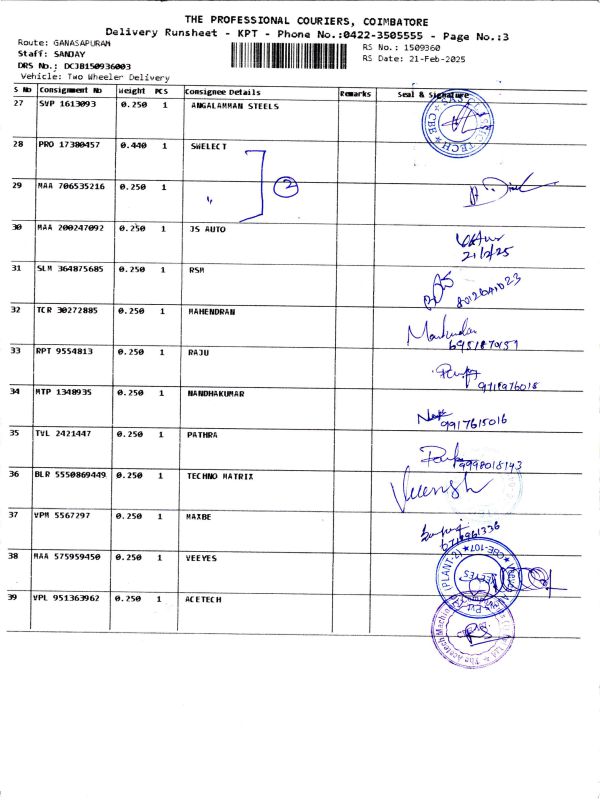 THE PROFESSIONAL COURIERS, COIMBATORE
Delivery Runsheet - KPT - Phone No.:0422-3505555 - Page No.:3
Route: GANASAPURAM
Staff: SANJAY
DRS No.: DCJB150936003
Vehicle: Two Wheeler Delivery
RS No.: 1509360
RS Date: 21-Feb-2025
S No Consignment No Weight PCS Consignee Details Remarks Seal & Signature
27 SVP 1613093 0.250 1 ANGALAMMAN STEELS
28 PRO 17380457 0.440 1 SWELECT
2
29 MAA 706535216 0.250 1 "
30 MAA 200247092 0.250 1 JS AUTO
21/2/25
31 SLM 364875685 0.250 1 RSM
32 TCR 30272885 0.250 1 MAHENDRAN
33 RPT 9554813 0.250 1 RAJU
34 MTP 1348935 0.250 1 NANDHAKUMAR
9917615016
35 TVL 2421447 0.250 1 PATHRA
9998018143
36 BLR 5550869449 0.250 1 TECHNO MATRIX
37 VPM 5567297 0.250 1 MAXBE
38 MAA 575959450 0.250 1 VEEYES
39 VPL 951363962 0.250 1 ACETECH